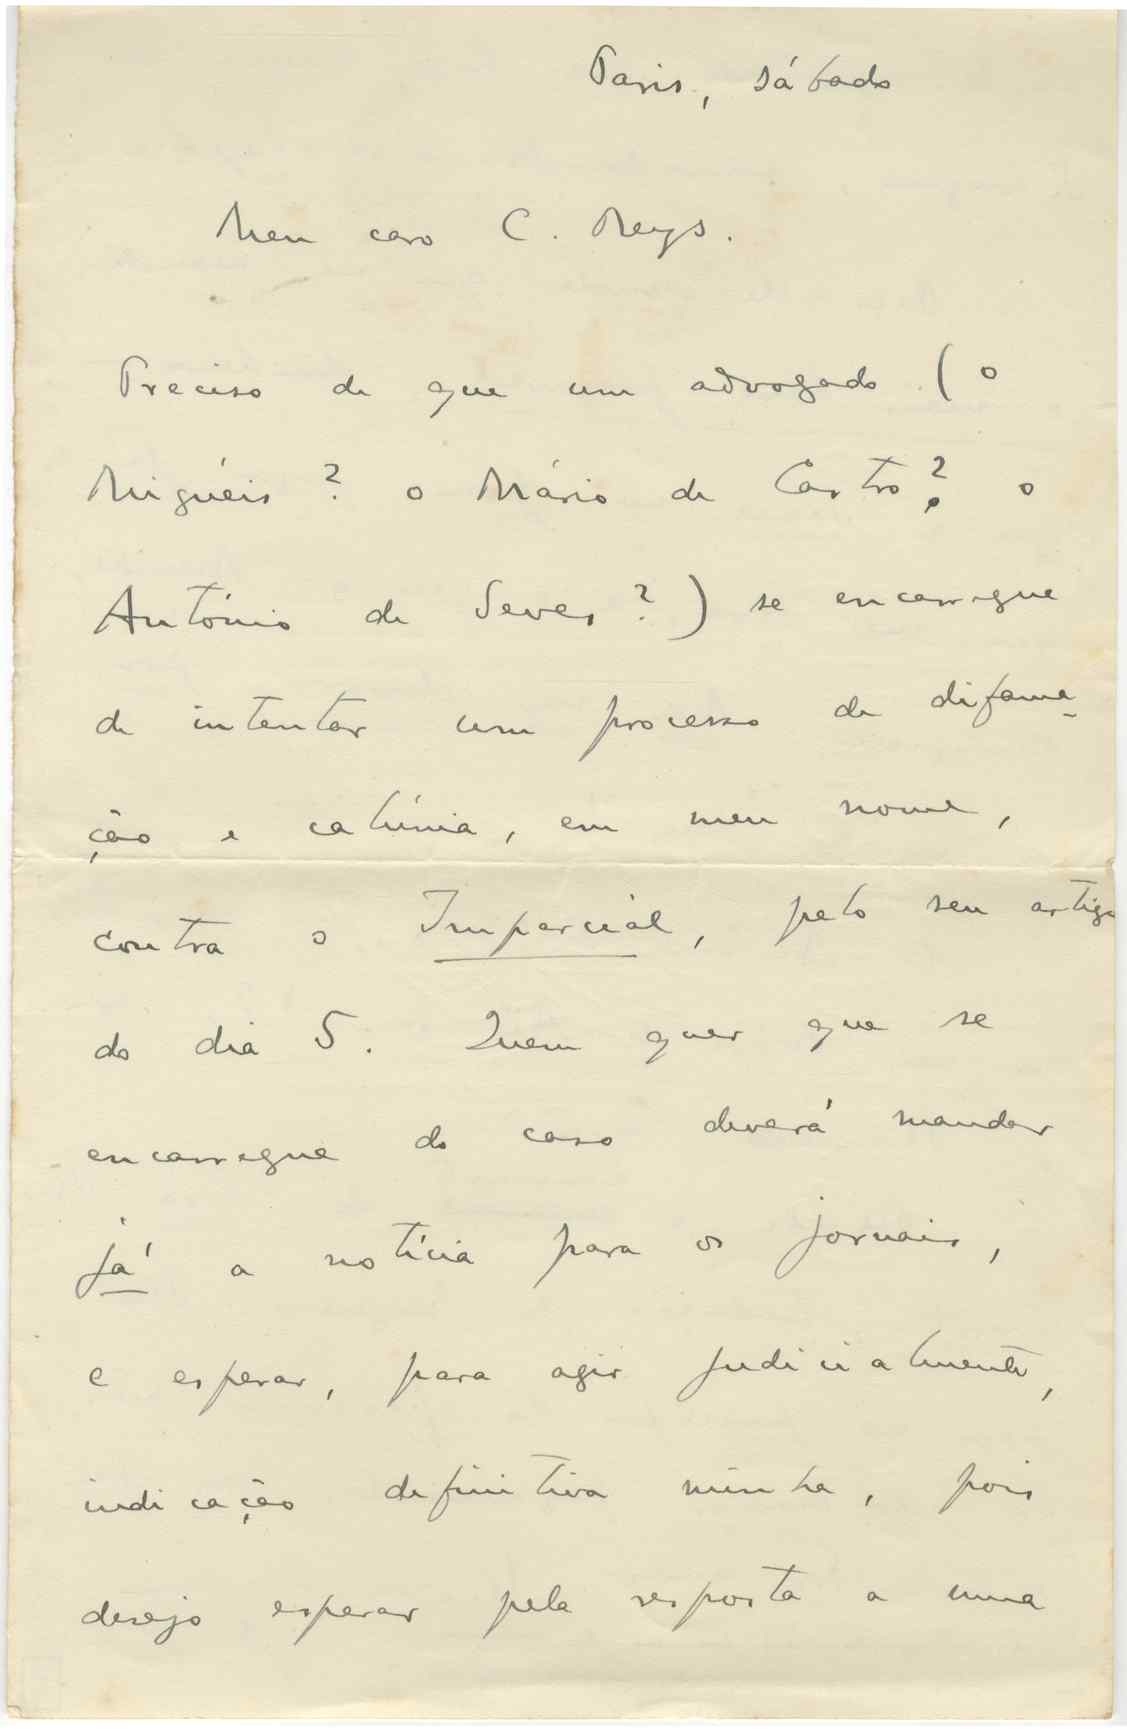 Paris, sábado
Meu caro C. Reys.
Preciso de que um advogado (o
Miguéis? o Mário de Castro? o
António de Seves?) se encarregue
de intentar um processo de difama-
ção e calúnia, em meu nome,
contra o Imparcial, pelo seu artigo
do dia 5. Quem quer que se
encarregue do caso deverá mandar
já a notícia para os jornais,
e esperar, para agir judicialmente,
indicação definitiva minha, pois
desejo esperar pela resposta a uma